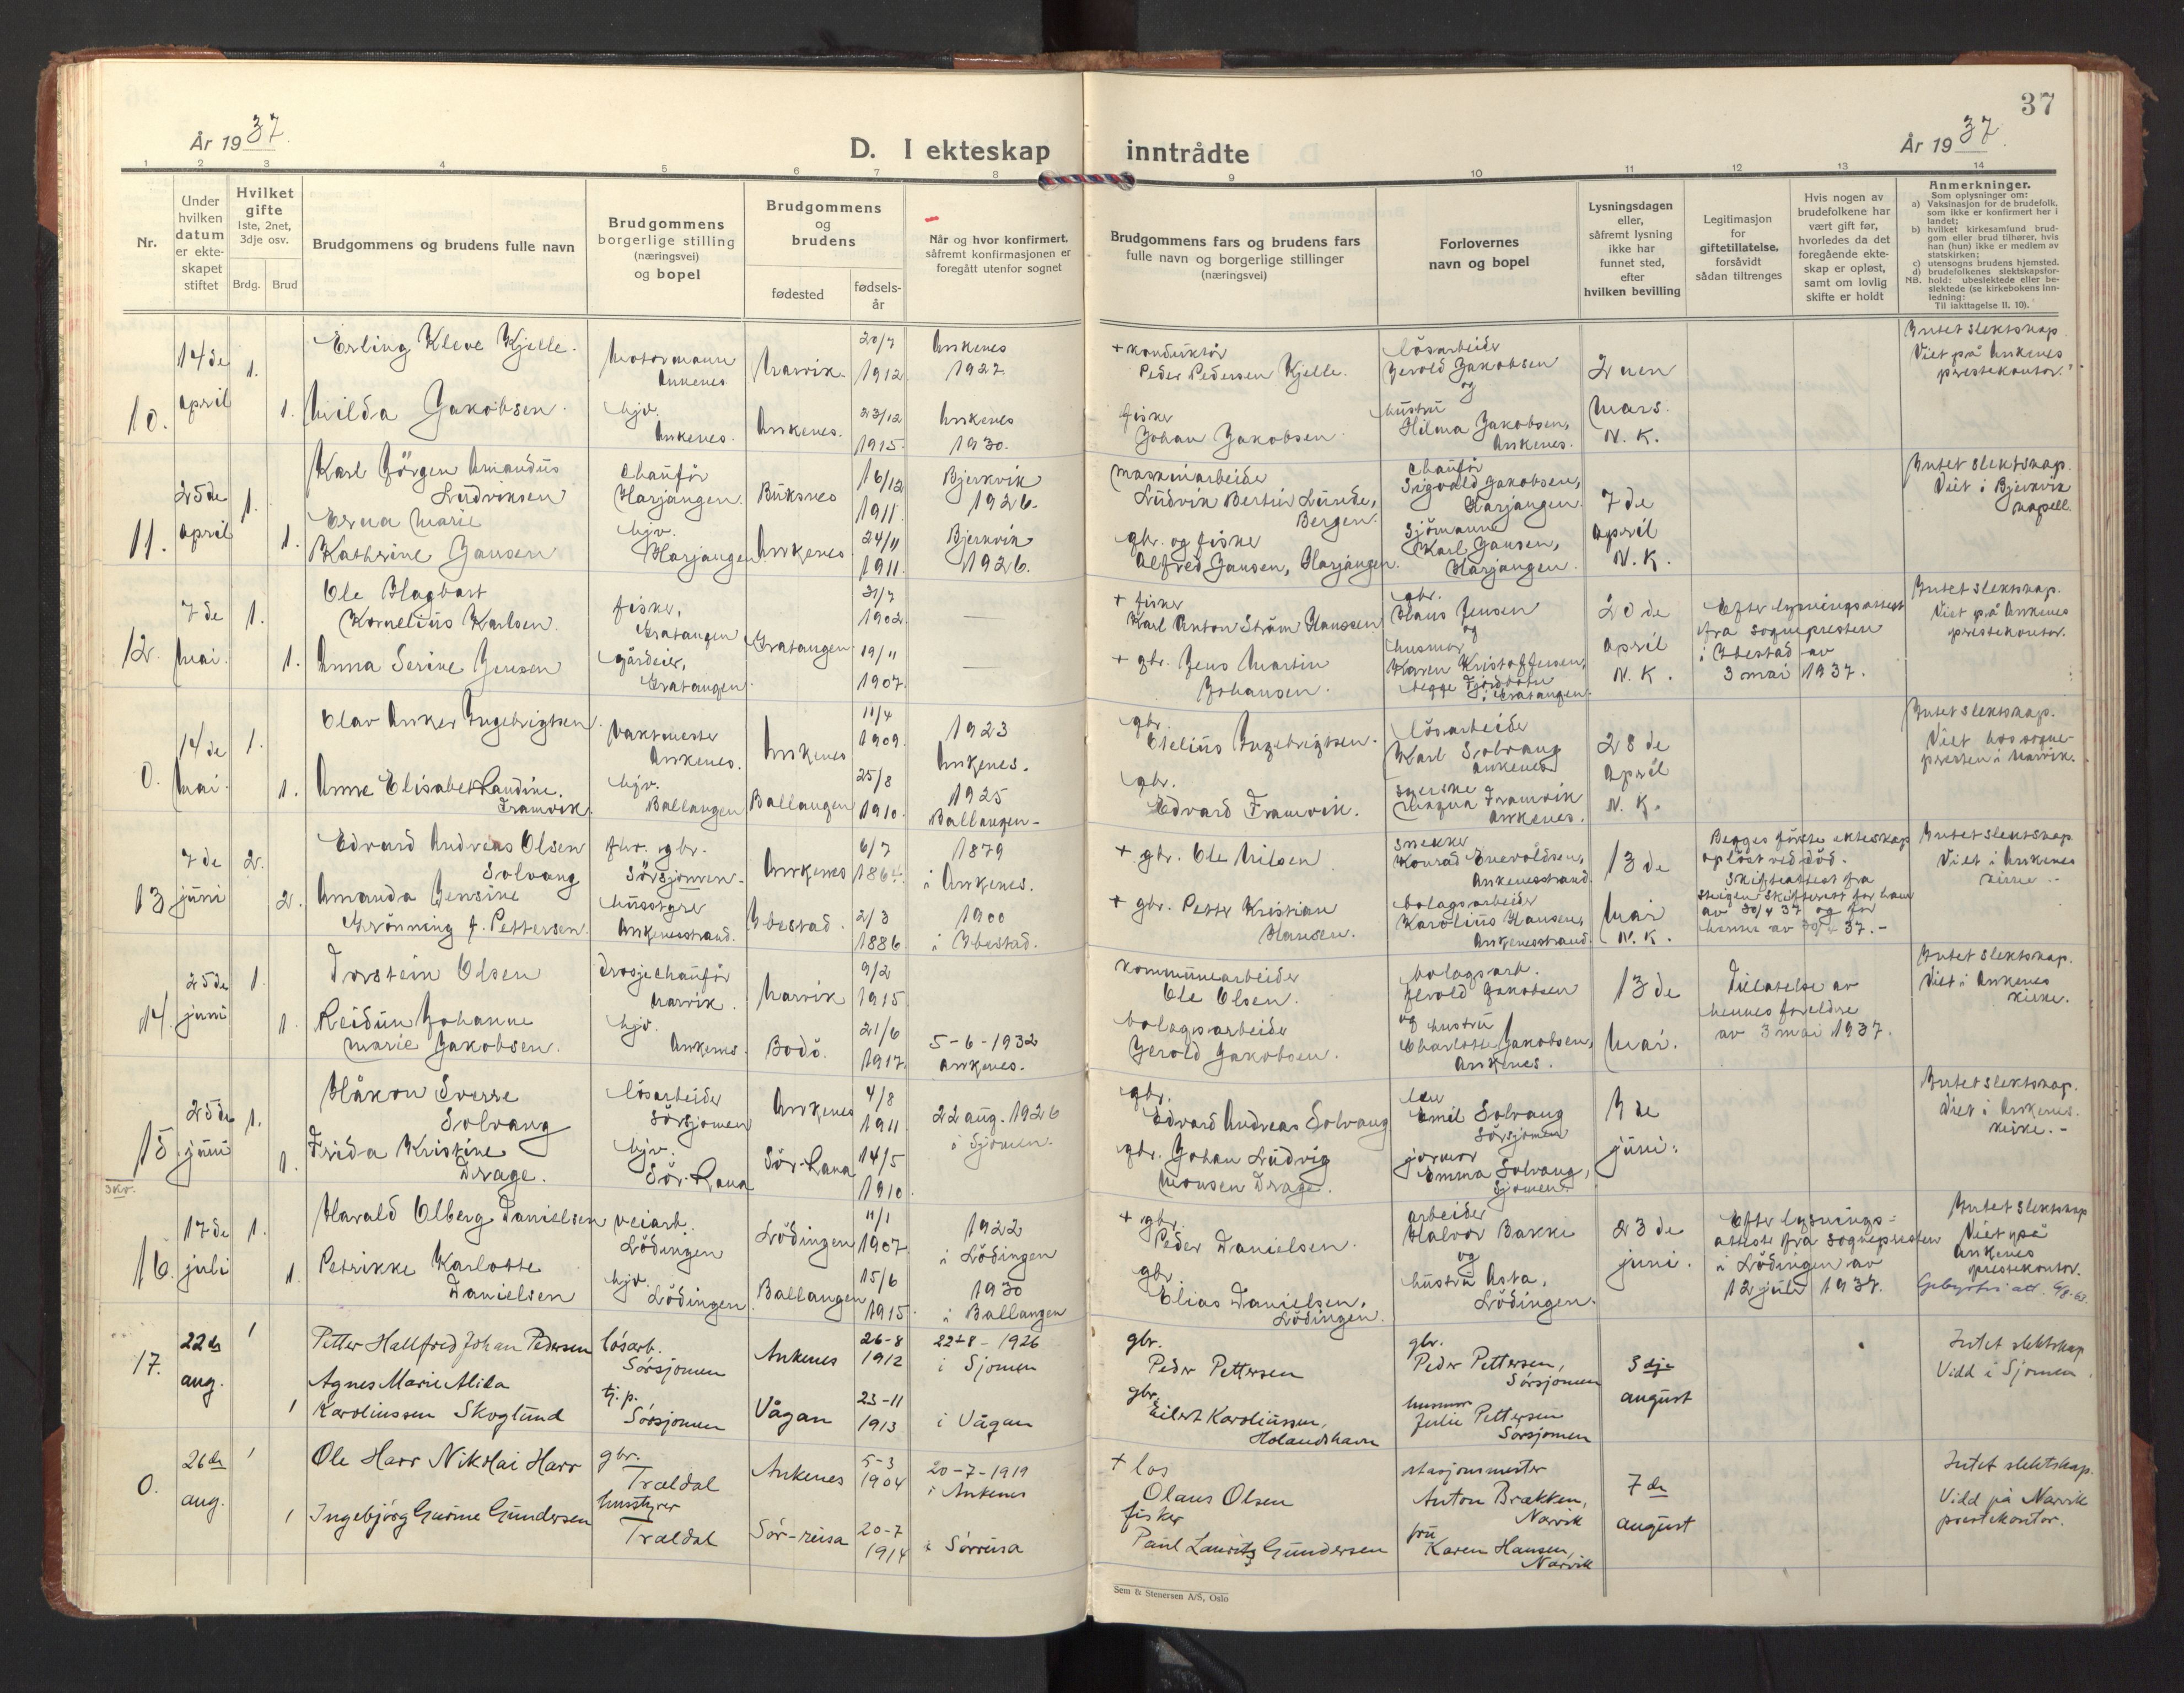 37
År 1937.
D. I ekteskap inntrådte
År 1937.
1 2 3 4 5 6 7 8 9 10 11 12 13 14
Nr.
Under hvilken datum er ekte-skapet stiftet
Hvilket gifte 1ste, 2net, 3dje osv.
Brdg. Brud
Brudgommens og brudens fulle navn
Brudgommens borgerlige stilling (næringsvei) og bopel
Brudgommens og brudens
fødested
fødsels-år
Når og hvor konfirmert. såfremt konfirmasjonen er foregått utenfor sognet
Brudgommens fars og brudens fars fulle navn og borgerlige stillinger (næringsvei)
Forlovernes navn og bopel
Lysningsdagen eller, såfremt lysning ikke har funnet sted, efter hvilken bevilling
Legitimasjon for giftetillatelse. forsåvidt sådan tiltrenges
Hvis nogen av brudefolkene har vært gift før, hvorledes da det foregående ekte-skap er opløst, samt om lovlig skifte er holdt
Anmerkninger.
Som oplysninger om:
a) Vaksinasjon for de brudefolk, som ikke er konfirmert her i landet;
b) hvilket kirkesamfund brud-gom eller brud tilhører, hvis han (hun) ikke er medlem av statskirken;
c) utensogns brudens hjemsted.
d) brudefolkenes slektskapsfor-hold: ubeslektede eller be-slektede (se kirkebokens inn-ledning:
NB. Til iakttagelse 11. 10).
10. 14 de april
1. Erling Kleve Kjelle.
Motormann Ankenes
Narvik. 20/7 1912
Ankenes 1927.
+ konduktør Peder Pedersen Kjelle.
løsarbeider Jerold Jakobsen og
2 nen Mars. N. K.
Intet slektskap. Viet på Ankenes prestekontor.
1. Milda Jakobsen.
hjv. Ankenes.
Ankenes. 23/12 1915.
Ankenes 1930.
fisker Johan Jakobsen
hustru Hilma Jakobsen, Ankenes.
11. 25 de april
1. Karl Jörgen Amandus Ludviksen
Chauffør Harjangen.
Buksnes 16/12 1911.
Bjerkvik 1926.
maskinarbeider Ludvik Bertin Lunde, Bergen.
Chauffør Sigvald Jakobsen, Harjangen.
7 de april N. K.
Intet slektskap. Viet i Bjerkvik kapell.
1. Erna Marie Kathrine Jansen
hjv. Harjangen
Ankenes 24/11 1911.
Bjerkvik 1926.
gbr. og fisker Alfred Jansen, Harjangen.
Sjømann Karl Jansen, Harjangen.
12. 7 de mai.
1. Ole Hagbart Kornelius Karlsen.
fisker, Gratangen
Gratangen 31/7 1902.
—
+ fisker Karl Anton Strøm Hanssen
gbr. Hans Jensen og
20 de april N. K.
Efter lysningsattest fra sognepresten i Ibestad av 3 mai 1937.
Intet slektskap. Viet på Ankenes prestekontor.
1. Anna Serine Jensen
gårdeier, Gratangen.
19/11 1907.
—
+ gbr. Jens Martin Johansen.
husmor Karen Kristoffersen, begge Fjordbotn i Gratangen.
0. 14 de mai.
1. Olav Anker Ingebrigtsen.
Vaktmester Ankenes.
Ankenes 11/4 1909.
1923 Ankenes.
gbr. Otelius Ingebrigtsen.
løsarbeider Karl Solvang Ankenes
28 de April N. K.
Intet slektskap. Viet hos sogne-presten i Narvik.
1. Anne Elisabet Randine. Framvik.
hjv. Ballangen
Ballangen 25/8 1910.
1925 Ballangen-
gbr. Edvard Framvik.
Magna Framvik Ankenes.
13 7 de juni
2. Edvard Andreas Olsen Solvang
fhv. gbr. Sörsjomen.
Ankenes 6/7 1864.
1879 i Ankenes.
+ gbr. Ole Nilsen
snekker Konrad Enevoldsen, Ankenesstrand.
13 de Mai N. K.
Begges første ekteskap opløst ved død. Skifteattest fra Steigen skifterett for ham av 30/4 37 og for henne av 30/4 37.-
Intet slektskap. Viet i Ankenes kirke.-
2. Amanda Jensine Grønning f. Pettersen.
husstyrer Ankenesstrand.
Ibestad. 2/3 1886
1900 i Ibestad.
+ gbr. Petter Kristian Hansen.
bolagsarbeider Karolius Hansen, Ankenesstrand.
14. 25 de juni
1. Torstein Olsen
Drosjechauffør Narvik.
Narvik 9/2 1915
kommunearbeider Ole Olsen.
bolagsarb. Jerold Jakobsen
13 de Mai.
Tillatelse av hennes foreldre av 3 mai 1937.
Intet slektskap. Viet i Ankenes kirke.
1. Reidun Johanne Marie Jakobsen.
hjv. Ankenes.
Bodö. 21/6 1917.
5-6-1932 Ankenes.
bolagsarbeider Jerold Jakobsen.
og hustru Charlotte Jakobsen, Ankenes.
15 25 de juni
1. Håkon Sverre Solvang
løsarbeider Sörsjomen
Ankenes 4/8 1911.
22 aug. 1926 i Sjomen.
gbr. Edvard Andreas Solvang
Emil Solvang Sörsjomen
3 de juni.
Intet slektskap. Viet i Ankenes. kirke.-
1. Frida Kristine Drage.
hjv. Sör-Rana
Sör-Rana 14/5 1910.
gbr. Johan Ludvig Monsen Drage.
jormor Emma Solvang, Sjomen.
16. 17 de juli
1. Harald Olberg Danielsen
veiarb. Lödingen
Lödingen 11/1 1907.
1922 i Lödingen
+ gbr. Peder Danielsen.
arbeider Halvor Bakke og
23 de juni.
Efter lysnings-atteste fra sognepresten i Lödingen av 12 juli 1937.
Intet slektskap Viet på Ankenes prestekontor.
1. Petrikke Karlotte Danielsen
hjv. Lödingen
Ballangen 15/6 1915.
1930 i Ballangen
gbr. Elias Danielsen, Lödingen.
hustru Asta, Lödingen.
17. 22 de aug.
1 Petter Hallfred Johan Pedersen
løsarb. Sörsjomen
Ankenes 26-8 1912
22-8-1926 i Sjomen
gbr. Peder Pettersen
gbr. Peder Pettersen, Sörsjomen
3 dje august
Intet slektskap Vidd i Sjomen.
1 Agnes Marie Alida Karoliussen Skoglund
tj. p. Sörsjomen
Vågan 23-11 1913
i Vågan
gbr. Eilert Karoliussen, Holandshavn
husmor Julie Pettersen Sörsjomen
0. 26 de aug.
1 Ole Harr Nikolai Harr
gbr. Traldal
Ankenes 5-3 1904
20-7-1919 i Ankenes
+ los Olaus Olsen
stasjonsmester Anton Brækken, Narvik
7 de august
Intet slektskap. Vidd på Narvik prestekontor.
1 Ingebjörg Gunda Gundersen
husstyrer Traldal
Sör-reisa 20-7 1914
i Sörreisa
fisker Paul Lauritz Gundersen
fru Karen Hansen, Narvik
Sem & Stenersen A/S, Oslo